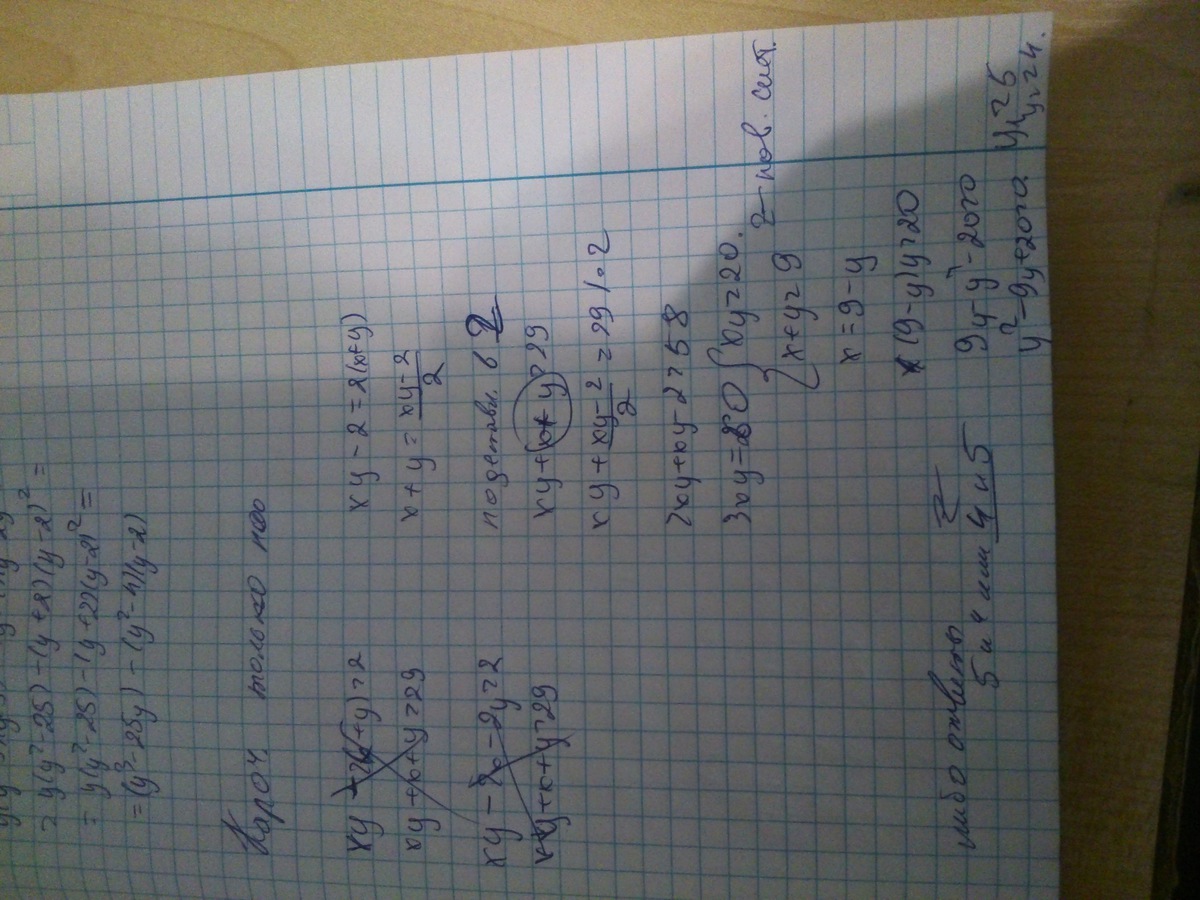 = y(y²-25) - (y+2)(y-2)² =
= y(y²-25) - (y+2)(y-2)² =
= (y³-25y) - (y²-4)(y-2)
Короч, только
xy - 2(x+y) = 2
xy + x + y = 29
xy - 2x - 2y = 2
xy + x + y = 29
xy - 2 = 2(x+y)
x + y = xy-2/2
подставл. в 2
xy + (x+y) = 29
xy + xy-2/2 = 29 | · 2
2xy + xy - 2 = 58
3xy = 60
{ xy = 20.
{ x + y = 9
нов. сист.
x = 9 - y
(9-y)y = 20
9y - y² - 20 = 0
y² - 9y + 20 = 0
y₁ = 5
y₂ = 4.
либо ответы
5 и 4 или 4 и 5